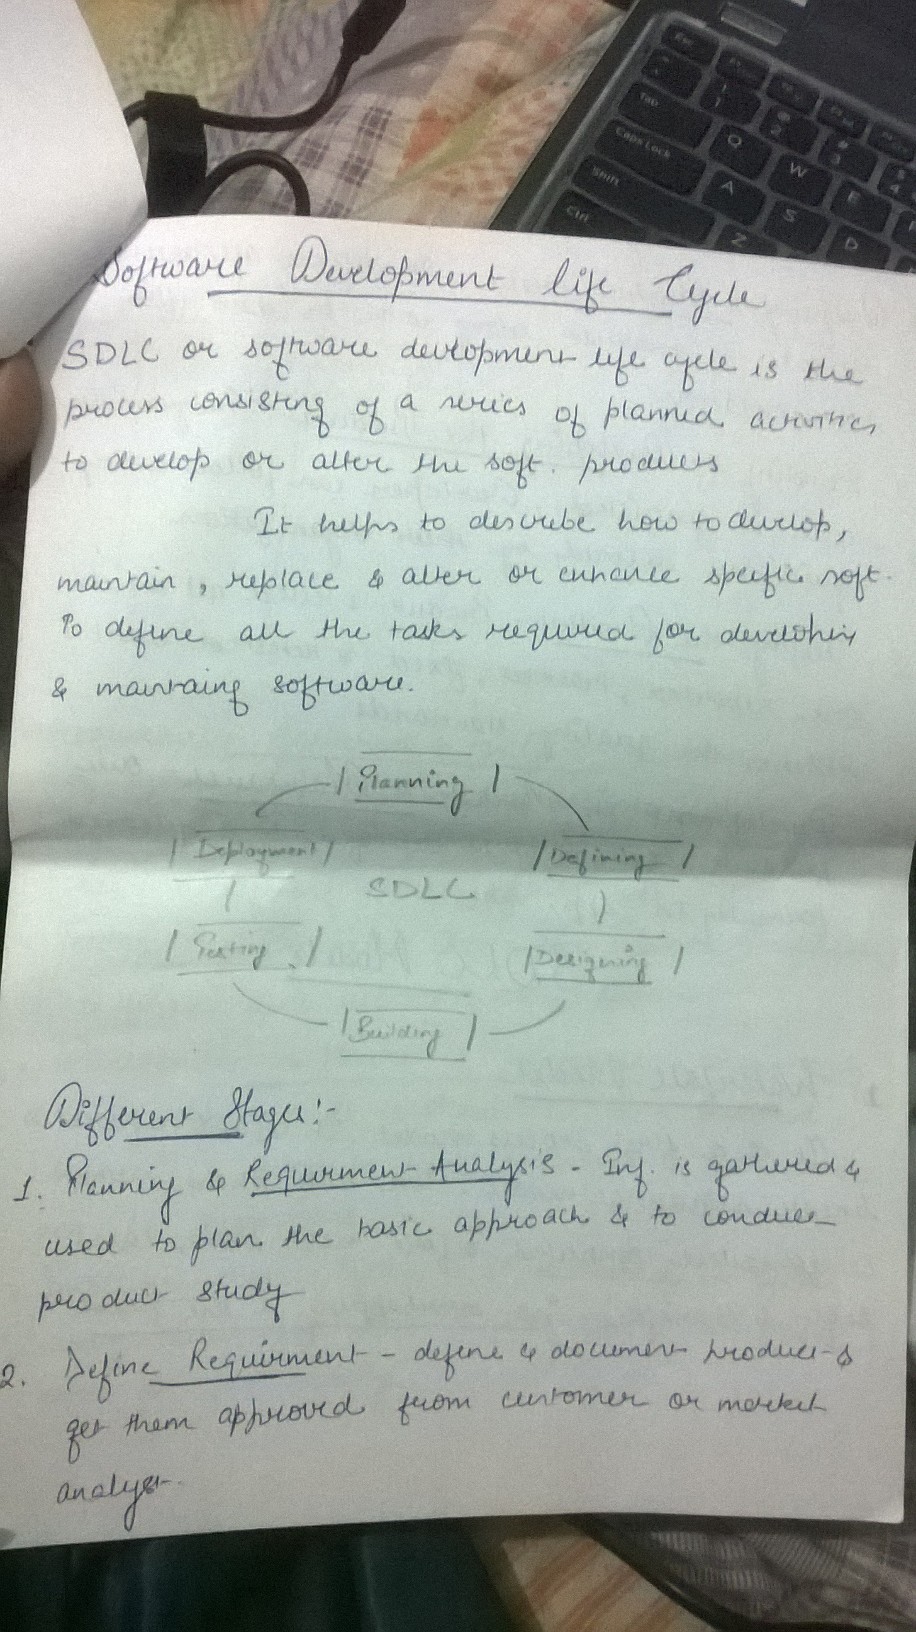 Esc
Tab
Caps Lock
Shift
Ctrl
Q W E
A S D
Z
Software Development life Cycle
SDLC or software development life cycle is the
process consisting of a series of planned activities
to develop or alter the soft. products
It helps to describe how to develop,
maintain, replace & alter or enhance specific soft.
To define all the tasks required for developing
& maintaing software.
Planning
Deployment
Defining
SDLC
Testing
Designing
Building
Different Stages:-
1. Planning & Requirment Analysis - Inf. is gathered &
used to plan the basic approach & to conduct
product study
2. Define Requirment - define & document product &
get them approved from customer or market
analyst.